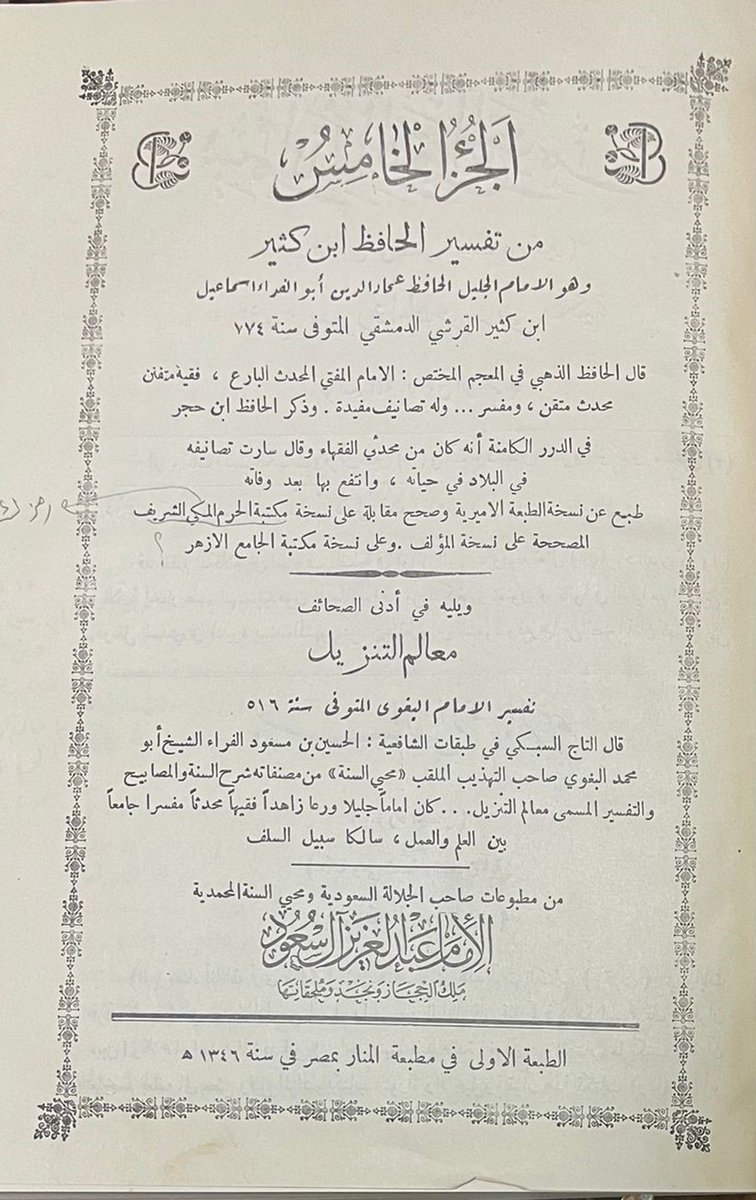 الجزء الخامس
من تفسير الحافظ ابن كثير
وهو الامام الجليل الحافظ عماد الدين أبو الفداء اسماعيل
ابن كثير القرشي الدمشقي المتوفى سنة ٧٧٤
قال الحافظ الذهبي في المعجم المختص : الامام المفتي المحدث البارع ، فقيه متفنن
محدث متقن ، ومفسر ... وله تصانيف مفيدة . وذكر الحافظ ابن حجر
في الدرر الكامنة أنه كان من محدثي الفقهاء وقال سارت تصانيفه
في البلاد في حياته ، وانتفع بها بعد وفاته
طبع عن نسخة الطبعة الاميرية وصحح مقابلة على نسخة مكتبة الحرم المكي الشريف
المصححة على نسخة المؤلف . وعلى نسخة مكتبة الجامع الازهر
؟
ويليه في أدنى الصحائف
معالم التنزيل
تفسير الامام البغوي المتوفى سنة ٥١٦
قال التاج السبكي في طبقات الشافعية : الحسين بن مسعود الفراء الشيخ أبو
محمد البغوي صاحب التهذيب الملقب «محيي السنة» من مصنفاته شرح السنة والمصابيح
والتفسير المسمى معالم التنزيل ... كان اماماً جليلا ورعا زاهداً فقيهاً محدثاً مفسرا جامعاً
بين العلم والعمل ، سالكا سبيل السلف
من مطبوعات صاحب الجلالة السعودية ومحيي السنة المحمدية
الإمام عبد العزيز آل سعود
ملك الحجاز ونجد وملحقاتها
الطبعة الاولى في مطبعة المنار بمصر في سنة ١٣٤٦ ه